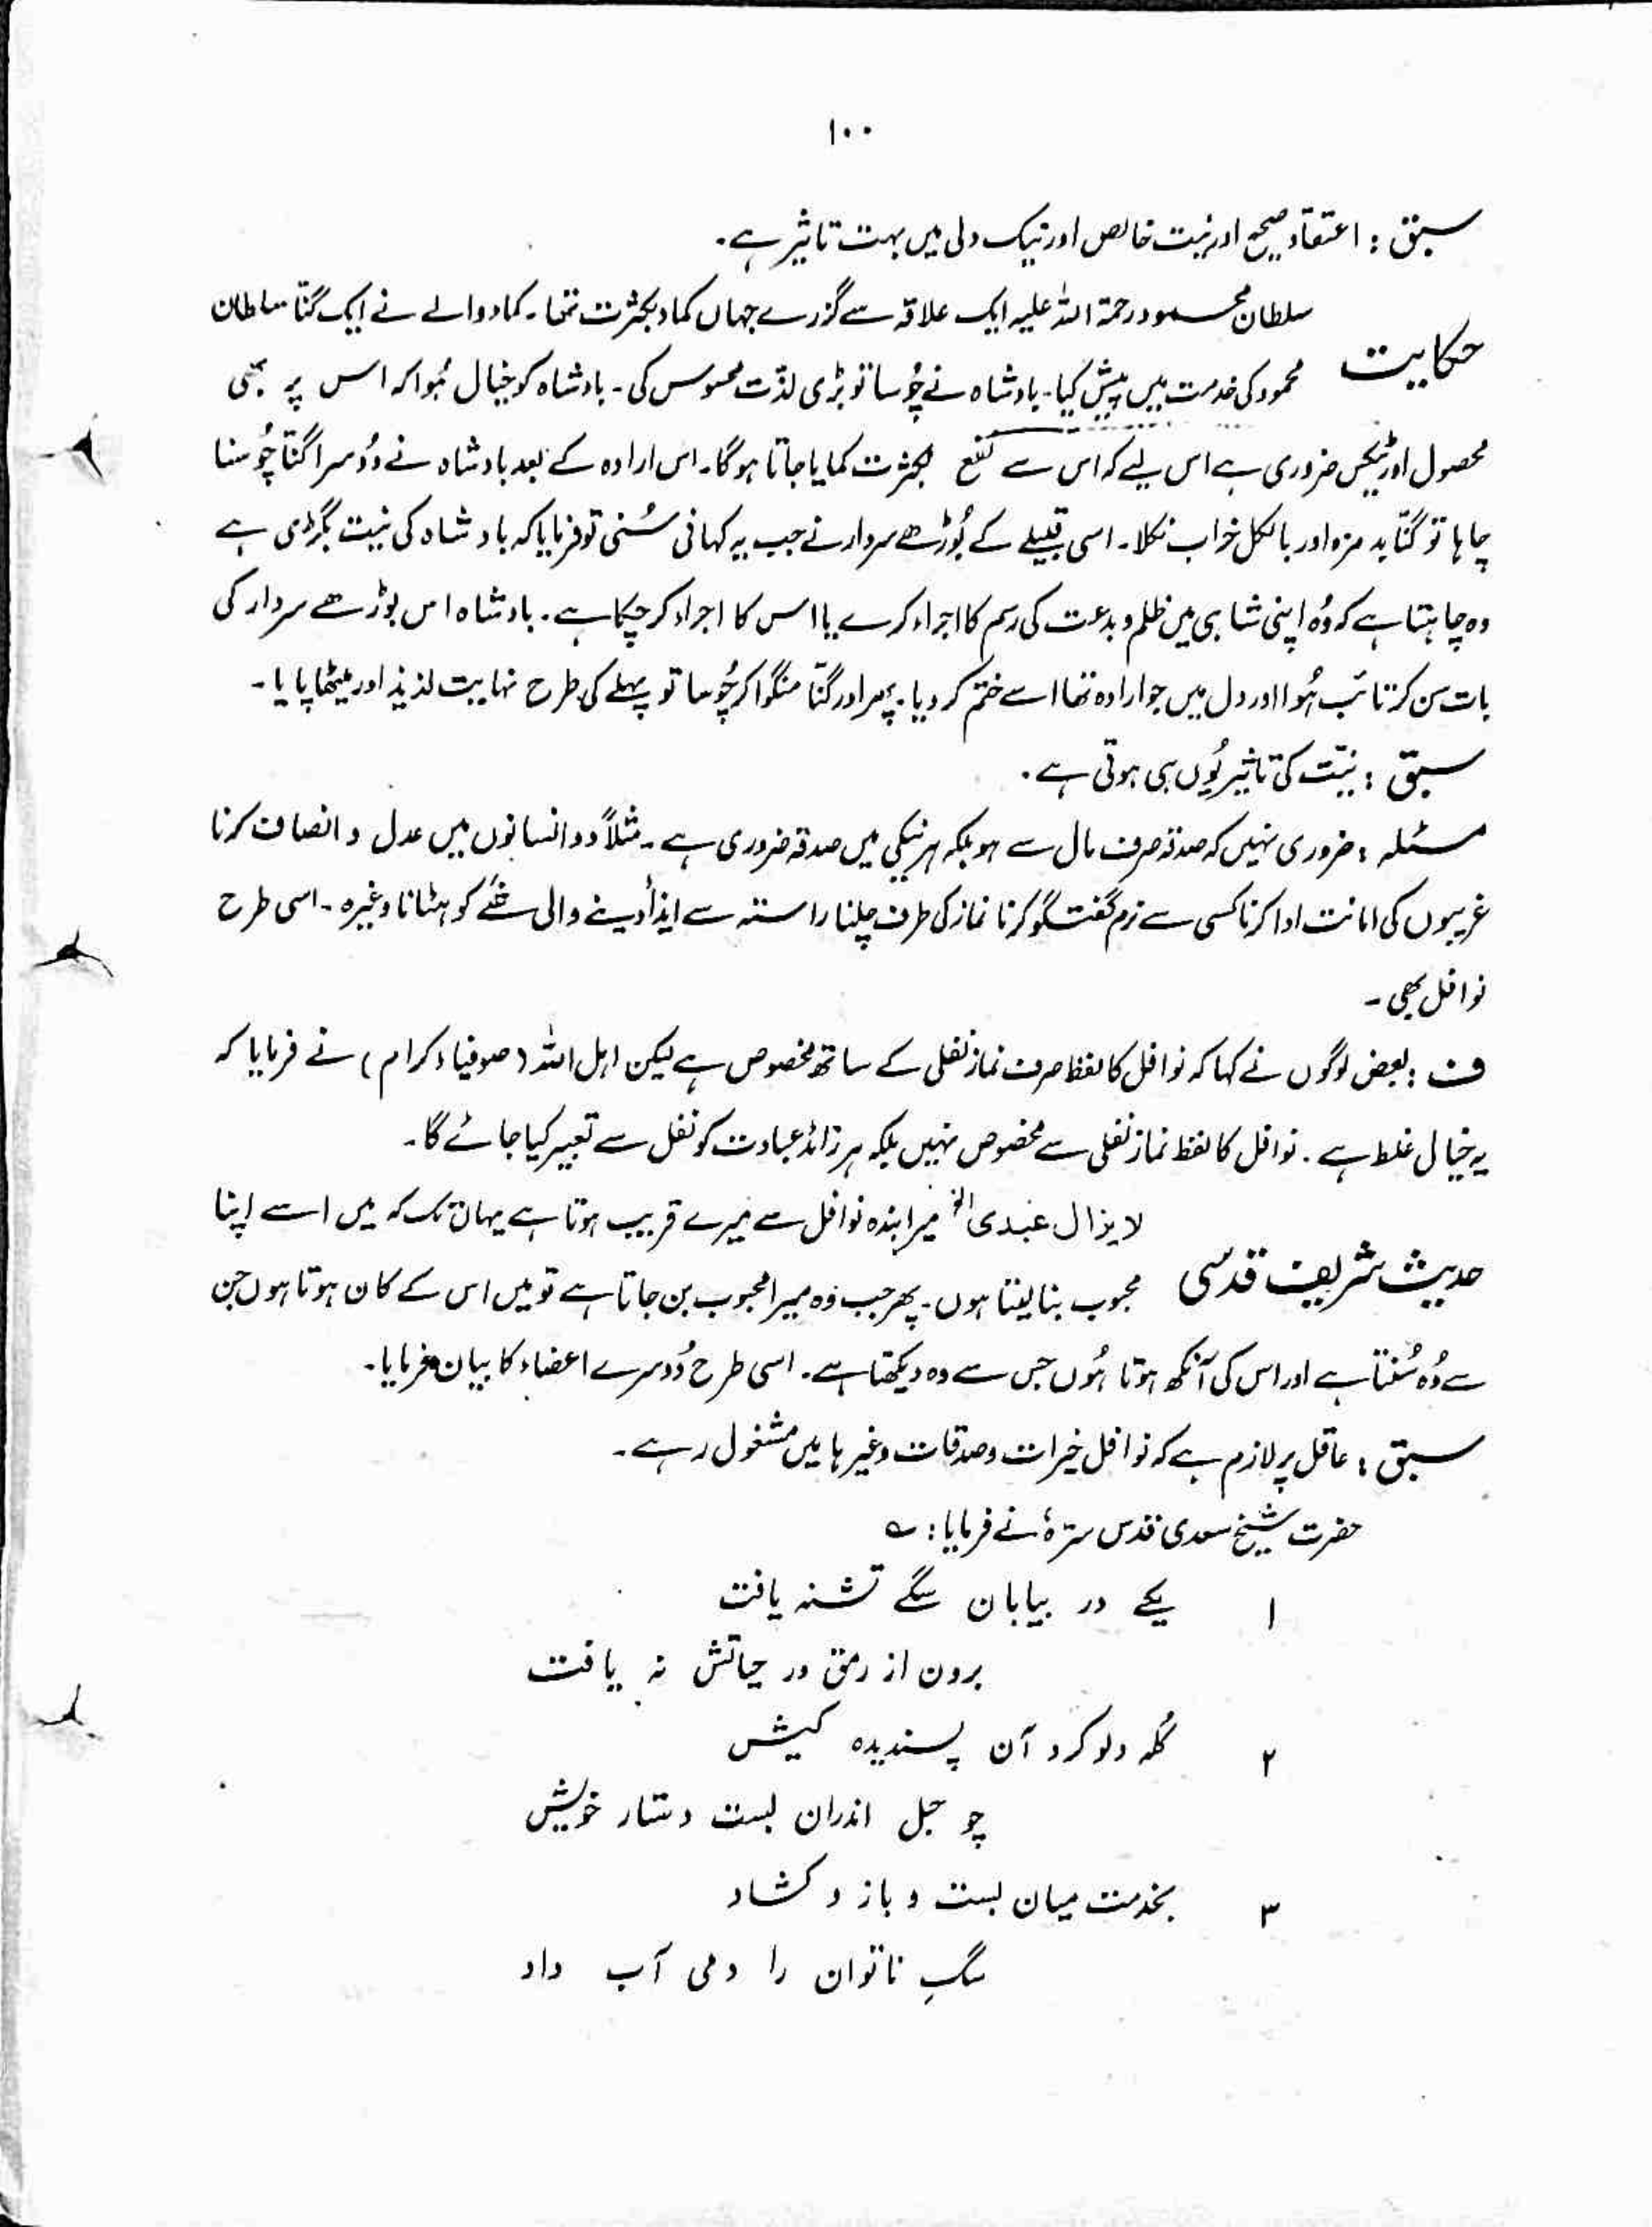 ۱۰۰
سبق : اعتقاد صحیح اور نیت خالص اور نیک دلی میں بہت تاثیر ہے۔
حکایت
سلطان محمود رحمۃ اللہ علیہ ایک علاقہ سے گزرے جہاں کماد بکثرت تھا۔ کماد والے نے ایک گنّا سلطان
محمود کی خدمت میں پیش کیا۔ بادشاہ نے چُوسا تو بڑی لذّت محسوس کی۔ بادشاہ کو خیال ہُوا کہ اس پر بھی
محصول اور ٹیکس ضروری ہے اس لیے کہ اس سے نفع بکثرت کمایا جاتا ہوگا۔ اس ارادہ کے بعد بادشاہ نے دُوسرا گنّا چُوسنا
چاہا تو گنّا بد مزہ اور بالکل خراب نکلا۔ اسی قبیلے کے بُوڑھے سردار نے جب یہ کہانی سُنی تو فرمایا کہ بادشاہ کی نیت بگڑی ہے
وہ چاہتا ہے کہ وُہ اپنی شاہی میں ظلم و بدعت کی رسم کا اجراء کرے یا اس کا اجراء کر چکا ہے۔ بادشاہ اس بوڑھے سردار کی
بات سن کر تائب ہُوا اور دل میں جو ارادہ تھا اسے ختم کر دیا۔ پھر اور گنّا منگوا کر چُوسا تو پہلے کی طرح نہایت لذیذ اور میٹھا پایا۔
سبق : نیّت کی تاثیر یُوں ہی ہوتی ہے۔
مسئلہ : ضروری نہیں کہ صدقہ صرف مال سے ہو بلکہ ہر نیکی میں صدقہ ضروری ہے۔ مثلاً دو انسانوں میں عدل و انصاف کرنا
غریبوں کی امانت ادا کرنا کسی سے نرم گفتگو کرنا نماز کی طرف چلنا راستہ سے ایذا دینے والی شَے کو ہٹانا وغیرہ۔ اسی طرح
نوافل بھی۔
ف : بعض لوگوں نے کہا کہ نوافل کا لفظ صرف نماز نفلی کے ساتھ مخصوص ہے لیکن اہل اللہ (صوفیاء کرام) نے فرمایا کہ
یہ خیال غلط ہے۔ نوافل کا لفظ نماز نفلی سے مخصوص نہیں بلکہ ہر زائد عبادت کو نفل سے تعبیر کیا جائے گا۔
حدیث شریف قدسی
لا یزال عبدی الخ میرا بندہ نوافل سے میرے قریب ہوتا ہے یہاں تک کہ میں اسے اپنا
محبوب بنا لیتا ہوں۔ پھر جب وُہ میرا محبوب بن جاتا ہے تو میں اس کے کان ہوتا ہوں جن
سے وُہ سُنتا ہے اور اس کی آنکھ ہوتا ہُوں جس سے وہ دیکھتا ہے۔ اسی طرح دُوسرے اعضاء کا بیان فرمایا۔
سبق : عاقل پر لازم ہے کہ نوافل خیرات و صدقات وغیرہا میں مشغول رہے۔
حضرت شیخ سعدی قدس سرّہٗ نے فرمایا : ؎
۱ یکے در بیابان سگے تشنہ یافت
برون از رمق در حیاتش نہ یافت
۲ کُلہ دلو کرد آن پسندیدہ کیش
چو حبل اندران بست دستار خویش
۳ بخدمت میان بست و باز و کشاد
سگِ ناتوان را دمی آب داد